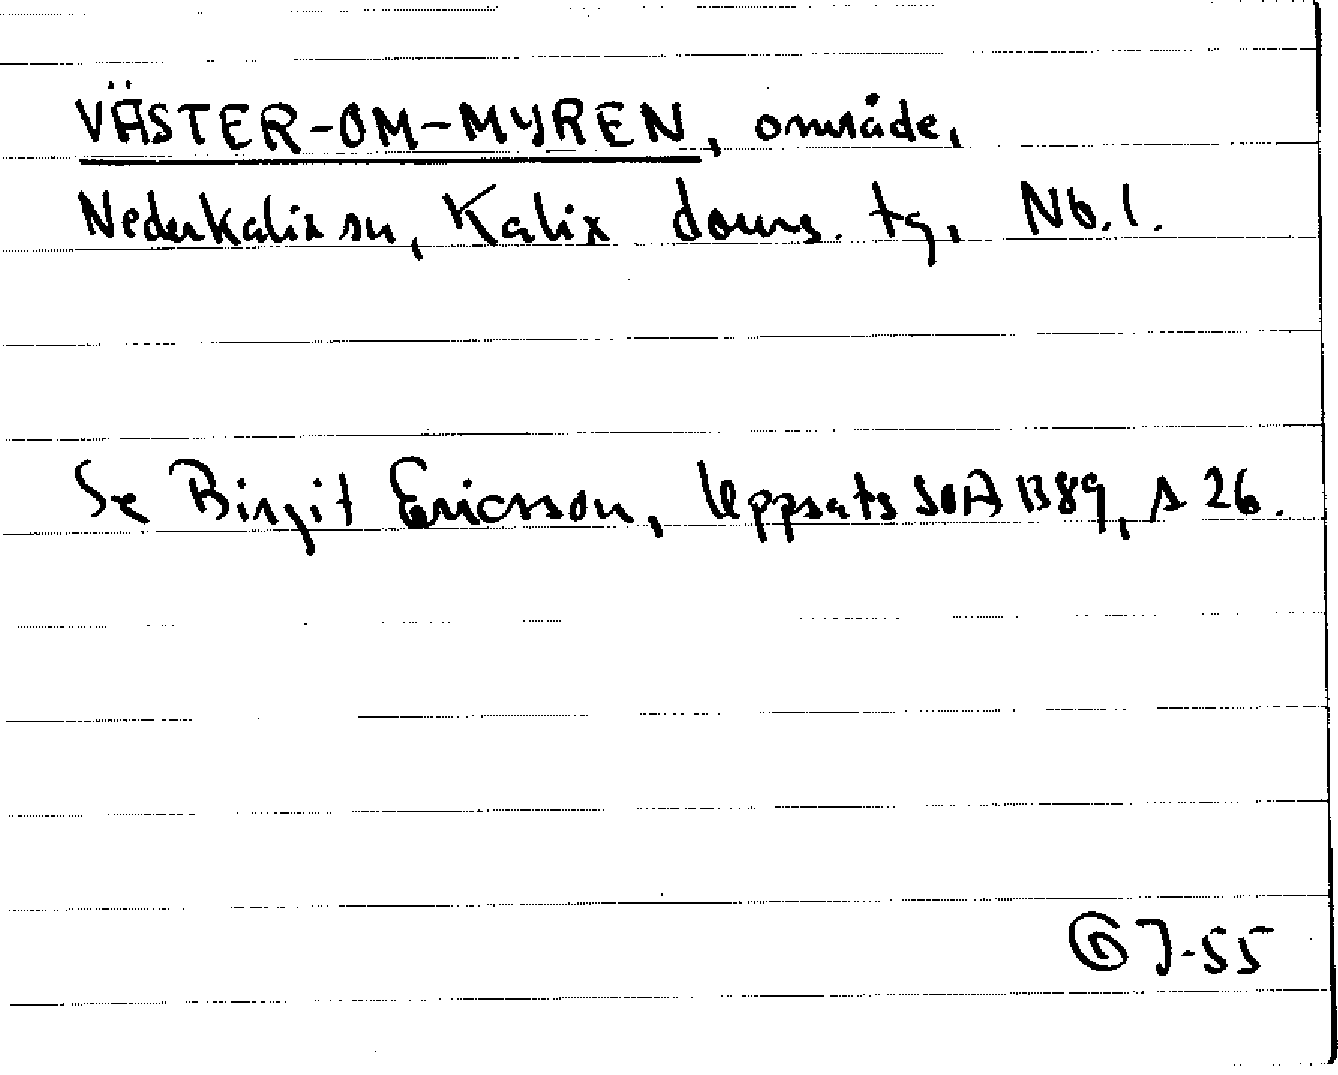 VÄSTER-OM-MYREN, område,
Nederkalix sn, Kalix doms. tg, Nb. l.
Se Birgit Ericsson, Uppsats SOA B89, s 26.
GJ-55